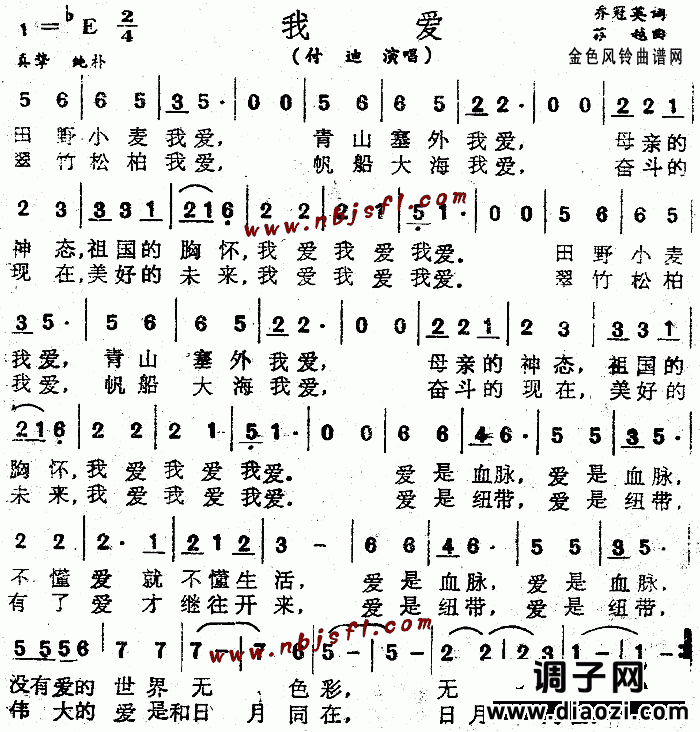 1=♭E 2/4
我 爱
乔冠英词
真挚 纯朴
(付 迪 演唱)
曲
金色风铃曲谱网
5 6 | 6 5 | 3 5· | 0 0 | 5 6 | 6 5 | 2 2· | 0 0 | 2 2 1 |
田野小麦我爱, 青山塞外我爱, 母亲的
翠竹松柏我爱, 帆船大海我爱, 奋斗的
2 3 | 3 3 1 | 2 1 6 | 2 2 | 2 1 | 5 1· | 0 0 | 5 6 | 6 5 |
www.nbjsfl.com
神态,祖国的胸怀,我爱我爱我爱. 田野小麦
现在,美好的未来,我爱我爱我爱. 翠竹松柏
3 5· | 5 6 | 6 5 | 2 2· | 0 0 | 2 2 1 | 2 3 | 3 3 1 |
我爱, 青山塞外我爱, 母亲的神态,祖国的
我爱, 帆船大海我爱, 奋斗的现在,美好的
2 1 6 | 2 2 | 2 1 | 5 1· | 0 0 | 6 6 | 4 6· | 5 5 | 3 5· |
胸怀,我爱我爱我爱. 爱是血脉,爱是血脉,
未来,我爱我爱我爱. 爱是纽带,爱是纽带,
2 2 | 2· 1 | 2 1 2 | 3 - | 6 6 | 4 6· | 5 5 | 3 5· |
不懂爱就不懂生活, 爱是血脉,爱是血脉,
有了爱才继往开来, 爱是纽带,爱是纽带,
5 5 5 6 | 7 7 | 7 - | 7 6 | 5 - | 5 - | 2 2 | 2 3 | 1 - | 1 -
www.nbjsfl.com
没有爱的世界无 色彩, 无
伟大的爱是和日 月同在, 日月
调子网
www.diaozi.com